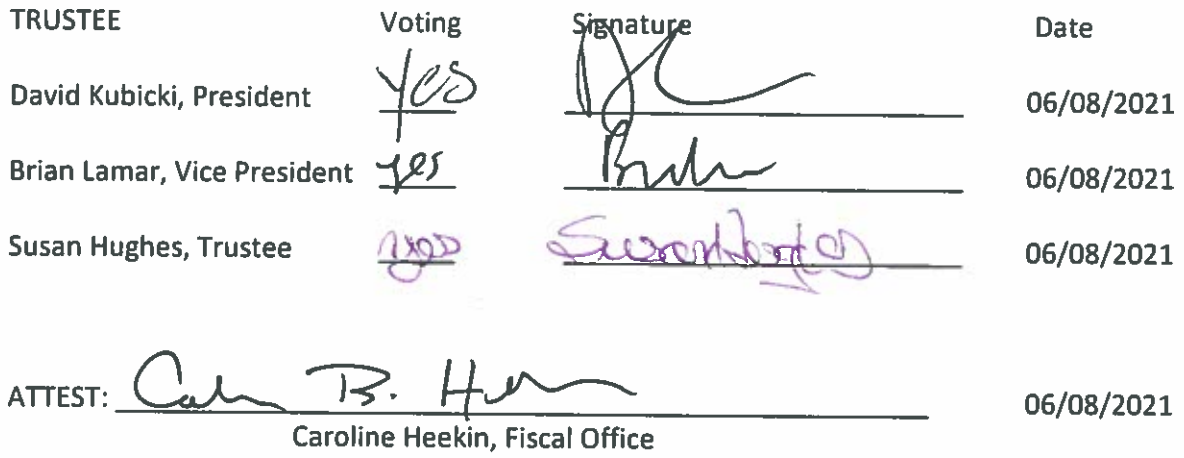 TRUSTEE Voting Signature Date
David Kubicki, President yes 06/08/2021
Brian Lamar, Vice President yes 06/08/2021
Susan Hughes, Trustee yes Susan Hughes 06/08/2021
ATTEST: B. 06/08/2021
Caroline Heekin, Fiscal Office